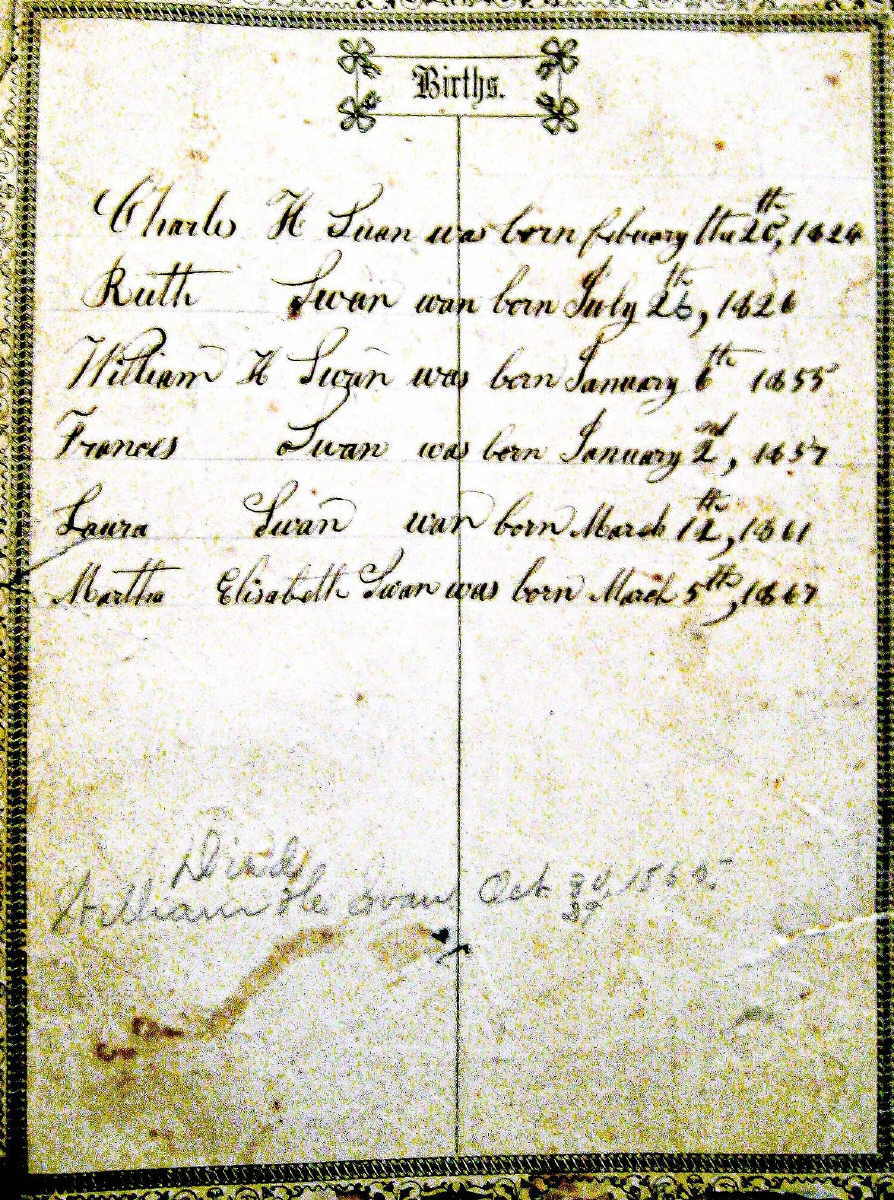 Births.
Charles H Swan was born febuary the th, 1824
Ruth Swan wan born July 26th, 1826
William H Swan was born January 6th 1855
Frances Swan was born January 2nd, 1857
Laura Swan wan born March 12th, 1861
Martha Elisabeth Swan was born March 5th, 1867
Died
William H Swan Oct 1865.